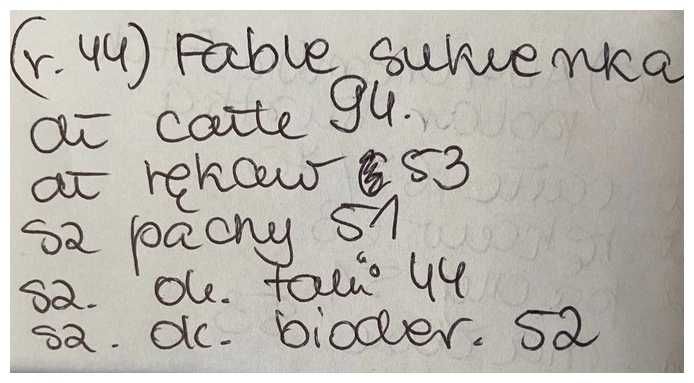 (r. 44) Fable sukienka
dł całe 94.
dł rękaw 53
sz pachy 51
sz. ok. talii 44
sz. ok. bioder. 52